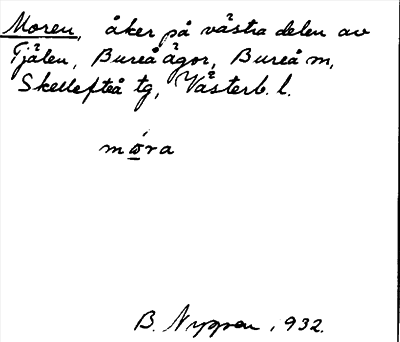 Moren, åker på västra delen av
Tjälen, Bureå ägor, Bureå m,
Skellefteå tg, Västerb. l.
móra
B. Nygren, 932.